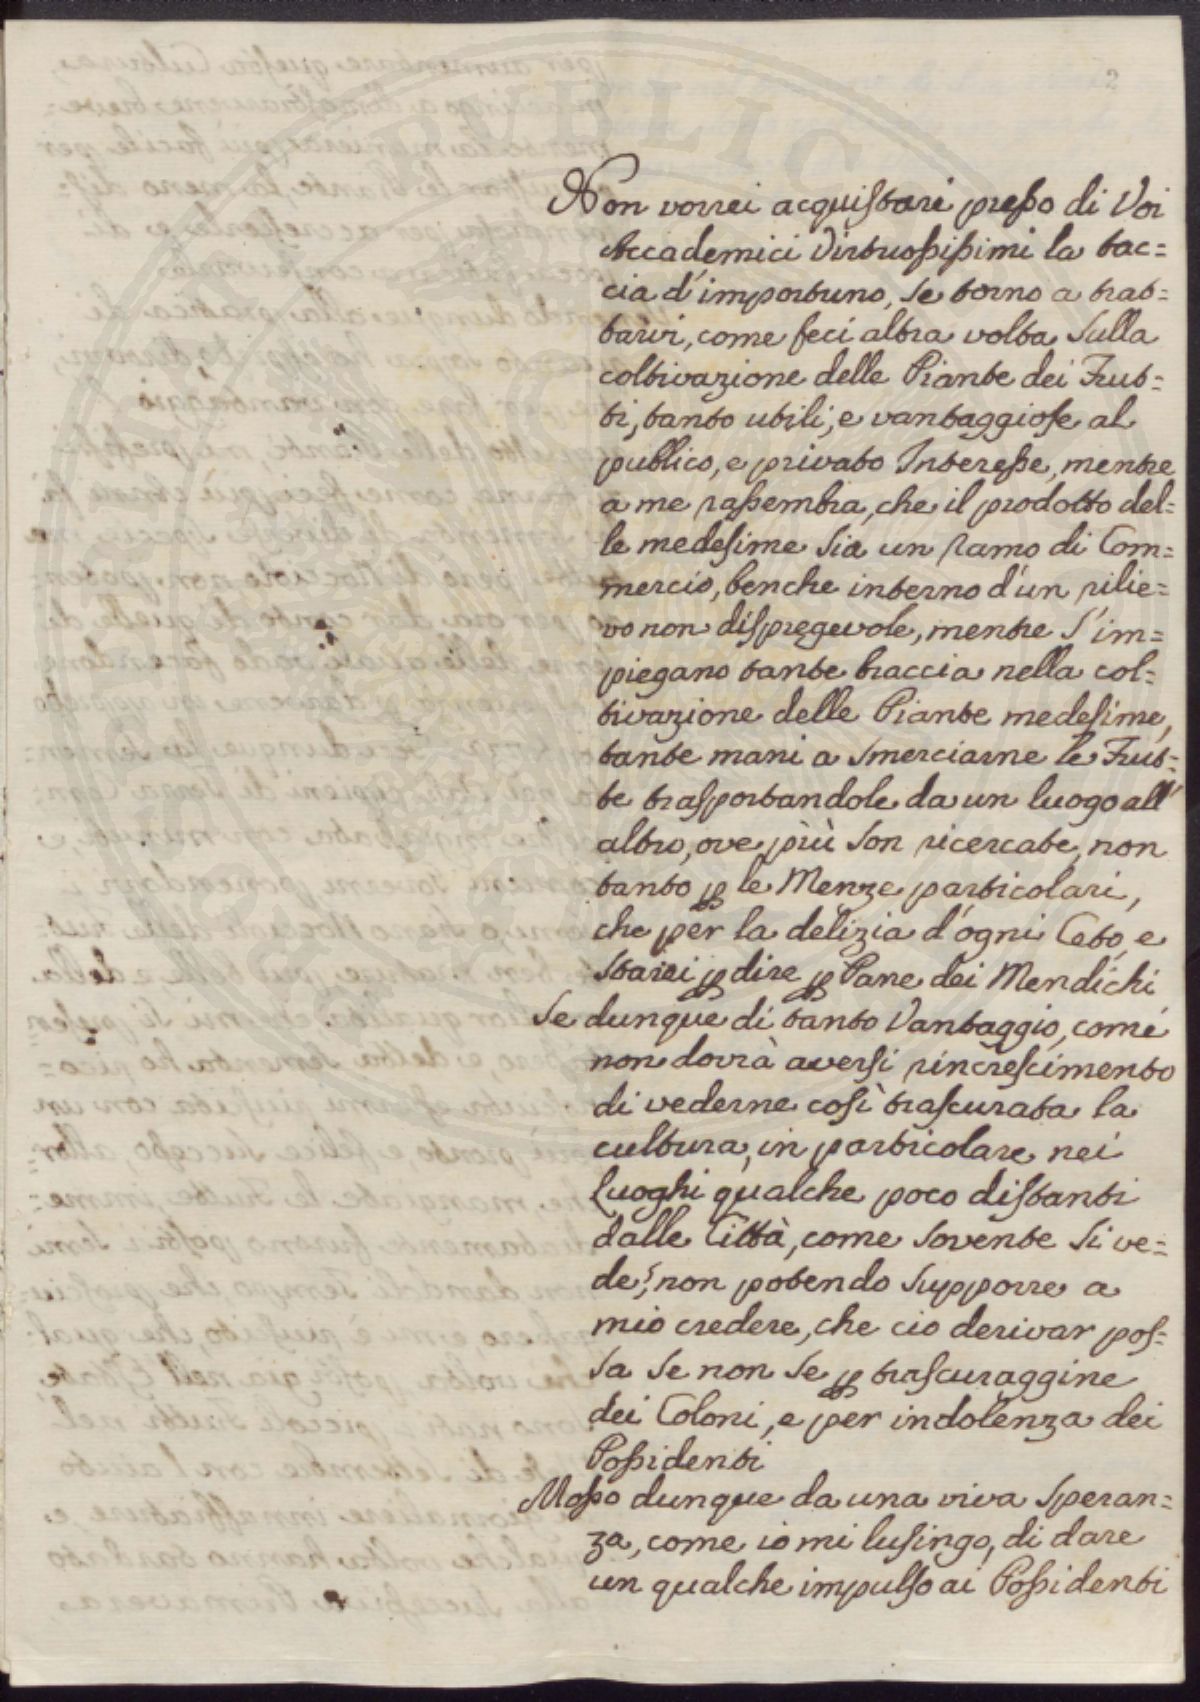 2
Non vorrei acquistari presso di Voi
Accademici Virtuosissimi la tac=
cia d'importuno, se torno a trat=
tarvi, come feci altra volta sulla
coltivazione delle Piante dei Frut=
ti, tanto utili, e vantaggiose al
publico, e privato Interesse, mentre
a me rassembra, che il prodotto del=
le medesime sia un ramo di Com=
mercio, benche interno d'un rilie=
vo non dispregevole, mentre s'im=
piegano tante braccia nella col=
tivazione delle Piante medesime,
tante mani a smerciarne le Frut=
te trasportandole da un luogo all'
altro, ove più son ricercate, non
tanto p le Menze particolari,
che per la delizia d'ogni Ceto, e
starei p dire p Pane dei Mendichi
Se dunque di tanto Vantaggio, come
non dovrà aversi rincrescimento
di vederne così trascurata la
cultura, in particolare nei
Luoghi qualche poco distanti
dalle Città, come sovente si ve=
de?, non potendo supporre a
mio credere, che cio derivar pos=
sa se non se p trascuraggine
dei Coloni, e per indolenza dei
Possidenti
Mosso dunque da una viva speran=
za, come io mi lusingo, di dare
un qualche impulso ai Possidenti